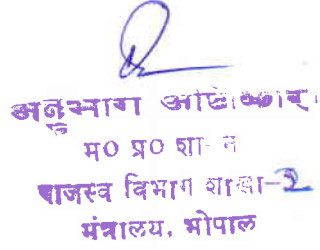 अनुभाग अधिकारी
म० प्र० शासन
राजस्व विभाग शाखा-2
मंत्रालय, भोपाल